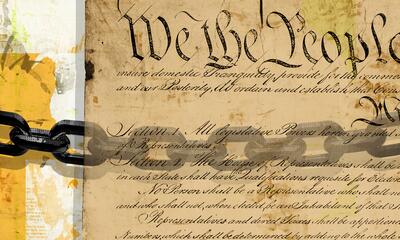 We the People
insure domestic Tranquility, provide for the common
and our Posterity, do ordain and establish this Cons
Section. 1. All legislative Powers herein granted s
of Representatives.
Section. 2. The House of Representatives shall be
in each State shall have Qualifications requisite for Elect
No Person shall be a Representative who shall n
and who shall not, when elected, be an Inhabitant of that S
Representatives and direct Taxes shall be apportione
Numbers, which shall be determined by adding to the whole